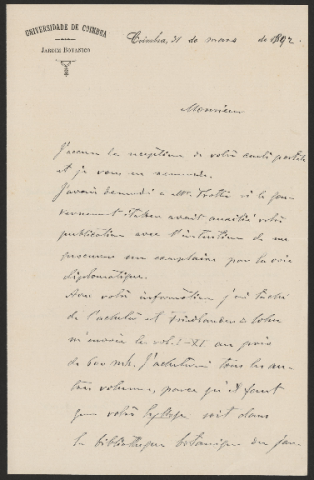 UNIVERSIDADE DE COIMBRA
JARDIM BOTANICO
Coimbra, 31 de mars de 1892.
Monsieur
J'accuse la reception de votre carte postale
et je vous en remercie.
J'avais demandé a Mr. Trotter si le gou
vernement italien avait auxilié votre
publication avec l'intention de me
procurer un complaire par la voie
diplomatique.
Avec votre information j'ai taché
de l'acheter et Friedlander à Berlin
m'envoie le vol. I-XI au prix
de 600 mk. J'acheterai tous les au
tres volumes, parce qu'il faut
que votre Sylloge soit dans
la bibliotheque botanique du jar